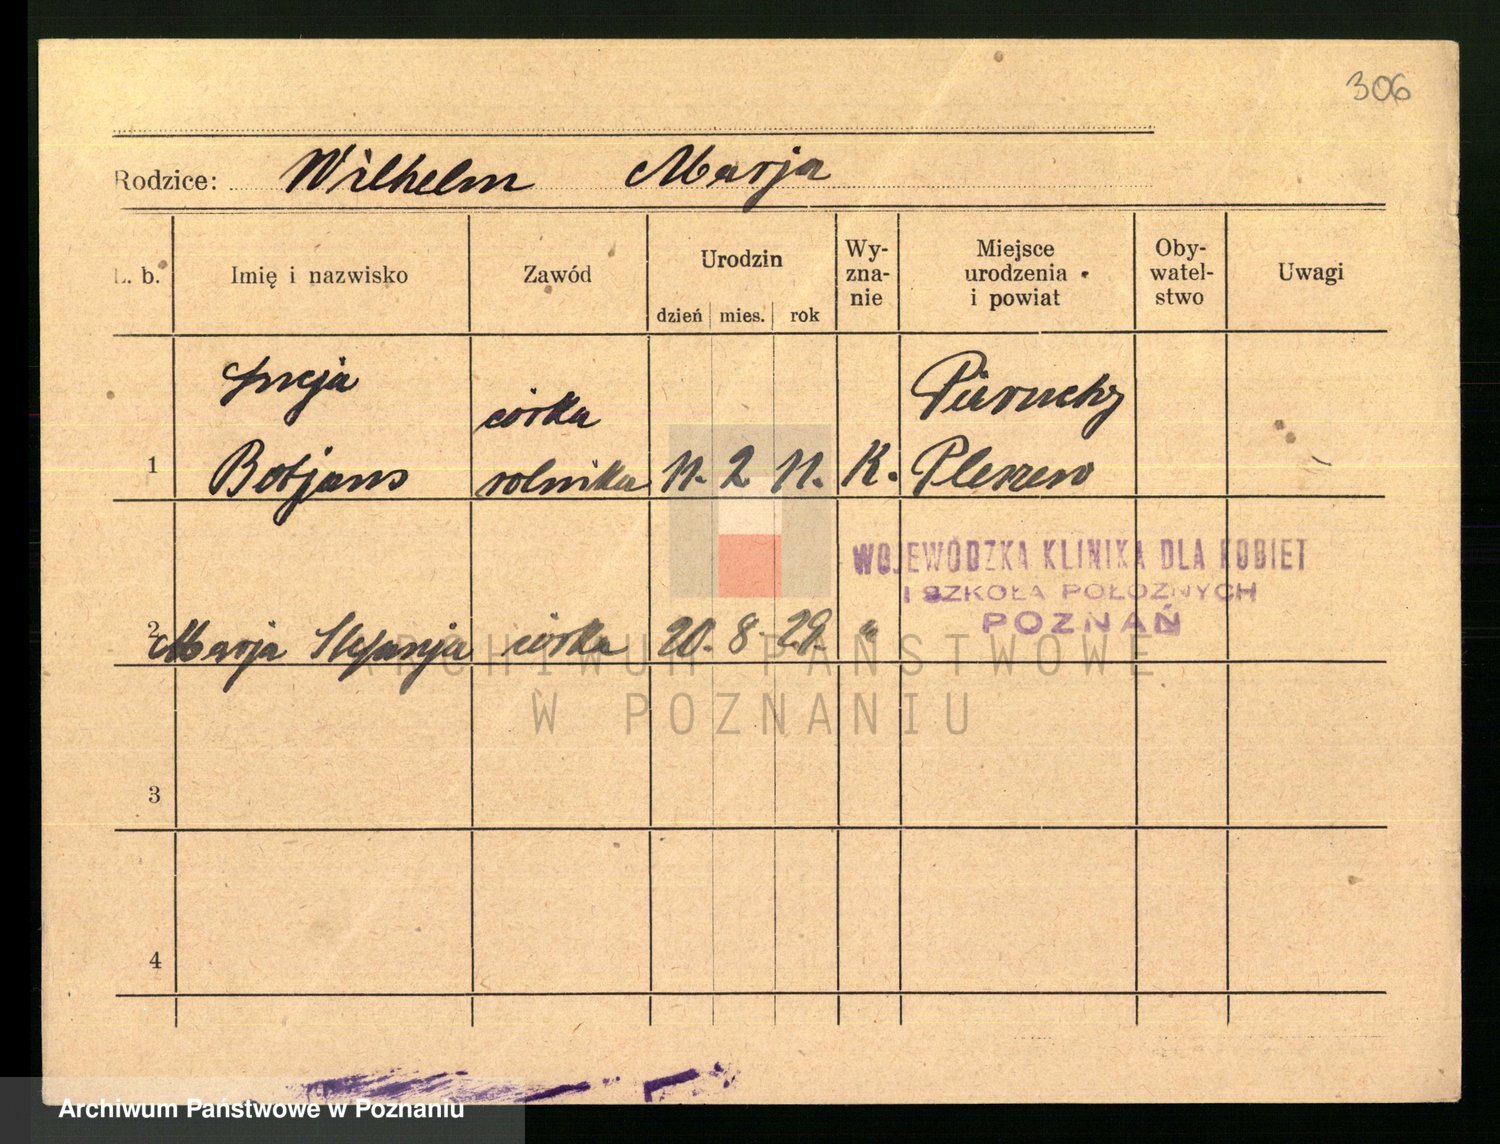 306
Rodzice: Wilhelm Marja
L. b. Imię i nazwisko Zawód Urodzin dzień mies. rok Wy-zna-nie Miejsce urodzenia i powiat Oby-watel-stwo Uwagi
córka Pieruchy
1 rolnika 11. 2 11. K. Pleszew
WOJEWÓDZKA KLINIKA DLA KOBIET
I SZKOŁA POŁOŻNYCH
POZNAŃ
2 Marja Stefanja córka 20. 8. 29. "
ARCHIWUM PAŃSTWOWE
W POZNANIU
3
4
Archiwum Państwowe w Poznaniu